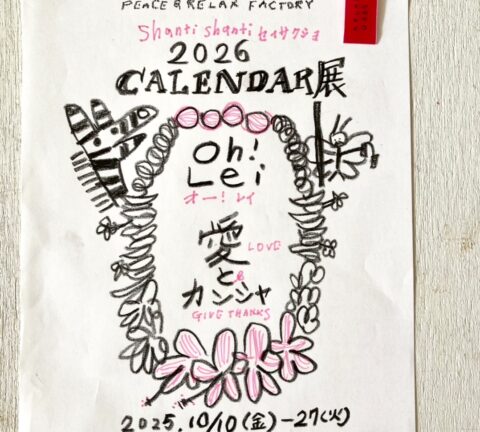 PEACE & RELAX FACTORY
Shanti Shanti セイサクショ
2026
CALENDAR展
Oh!
Lei
オー!レイ
愛 LOVE
と &
カンシャ
GIVE THANKS
2025.10/10(金)−27(火)